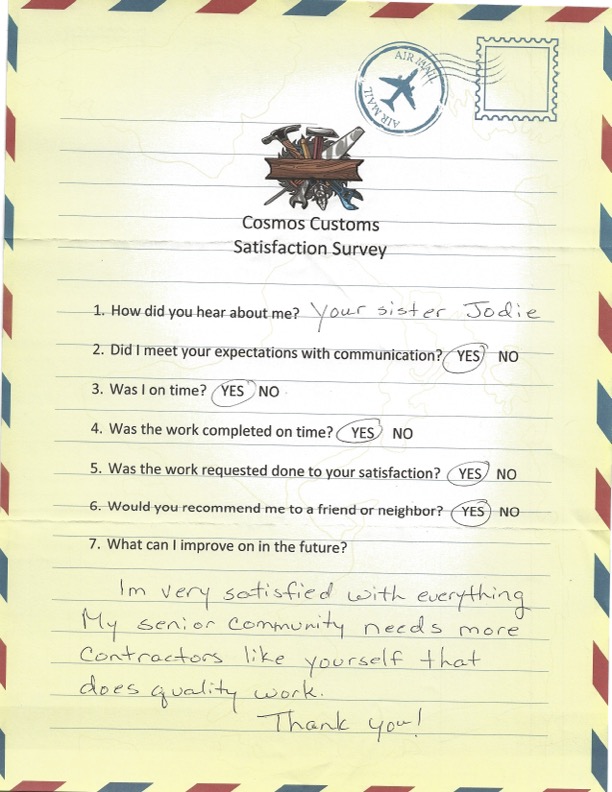 AIR MAIL
AIR MAIL
Cosmos Customs
Satisfaction Survey
1. How did you hear about me? Your sister Jodie
2. Did I meet your expectations with communication? YES NO
3. Was I on time? YES NO
4. Was the work completed on time? YES NO
5. Was the work requested done to your satisfaction? YES NO
6. Would you recommend me to a friend or neighbor? YES NO
7. What can I improve on in the future?
Im very satisfied with everything
My senior Community needs more
Contractors like yourself that
does quality work.
Thank you!